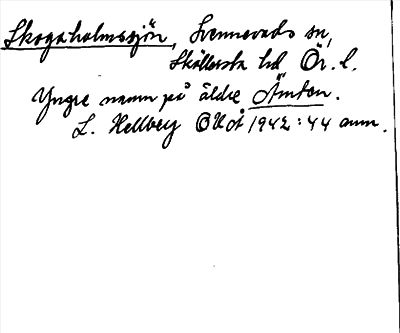 Skogaholmssjön, Svennevads sn,
Sköllersta hd Ör. l.
Yngre namn på äldre Ämten.
L. Hellberg OUÅ 1942:44 anm.